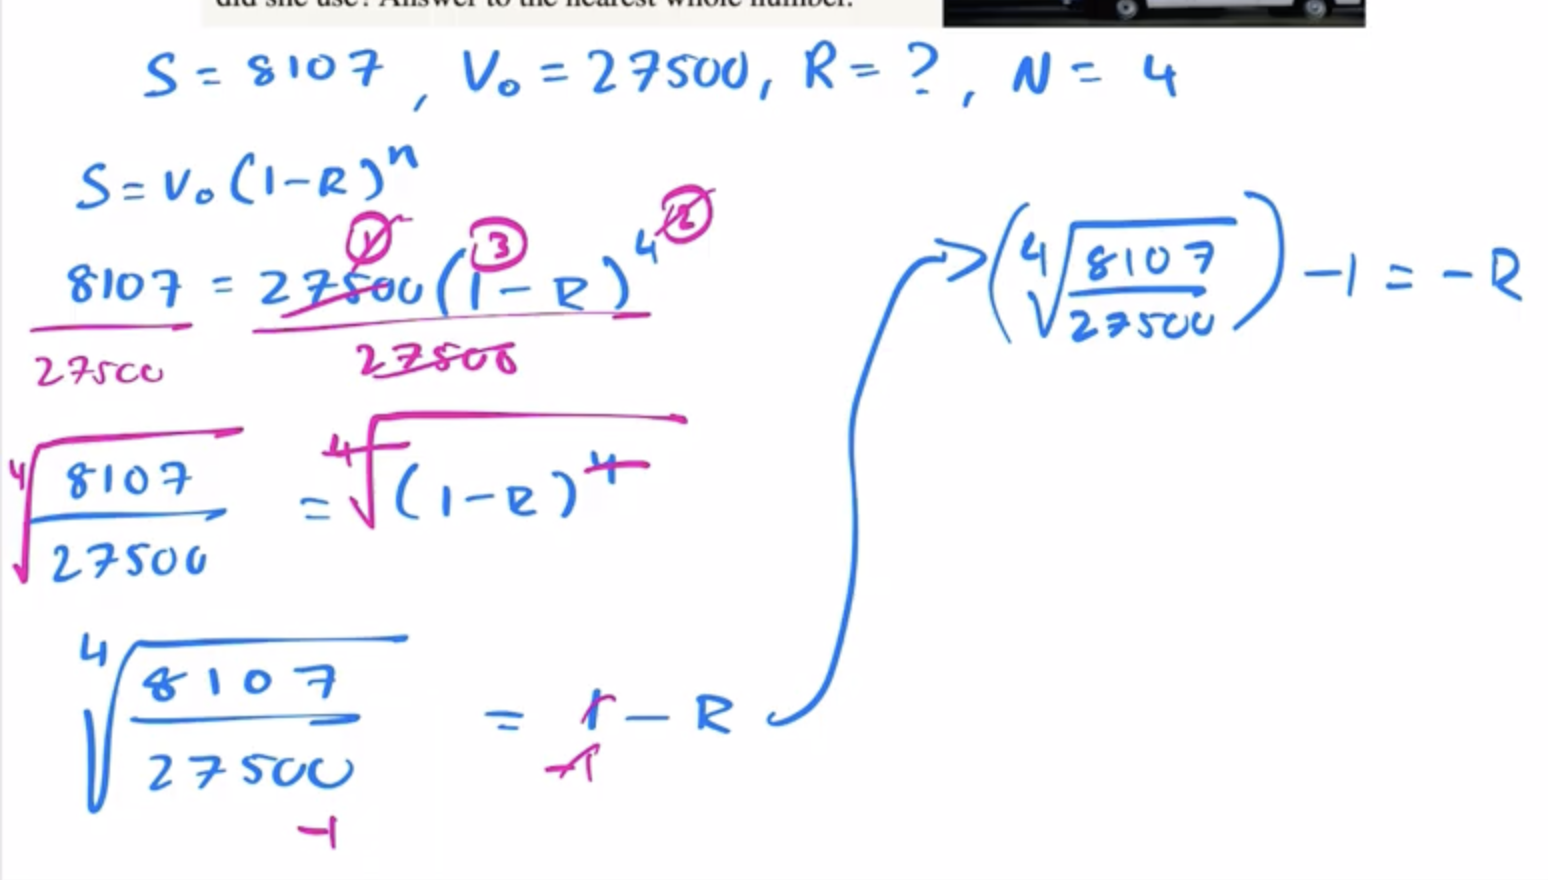 did she use? Answer to the nearest whole number.
S = 8107, V₀ = 27500, R = ?, N = 4
S = V₀(1-R)ⁿ
① ③ ②
8107 = 27500(1-R)⁴
27500 27500
⁴√(8107/27500) = ⁴√(1-R)⁴
⁴√(8107/27500) = 1-R
-1 -1
(⁴√(8107/27500)) -1 = -R